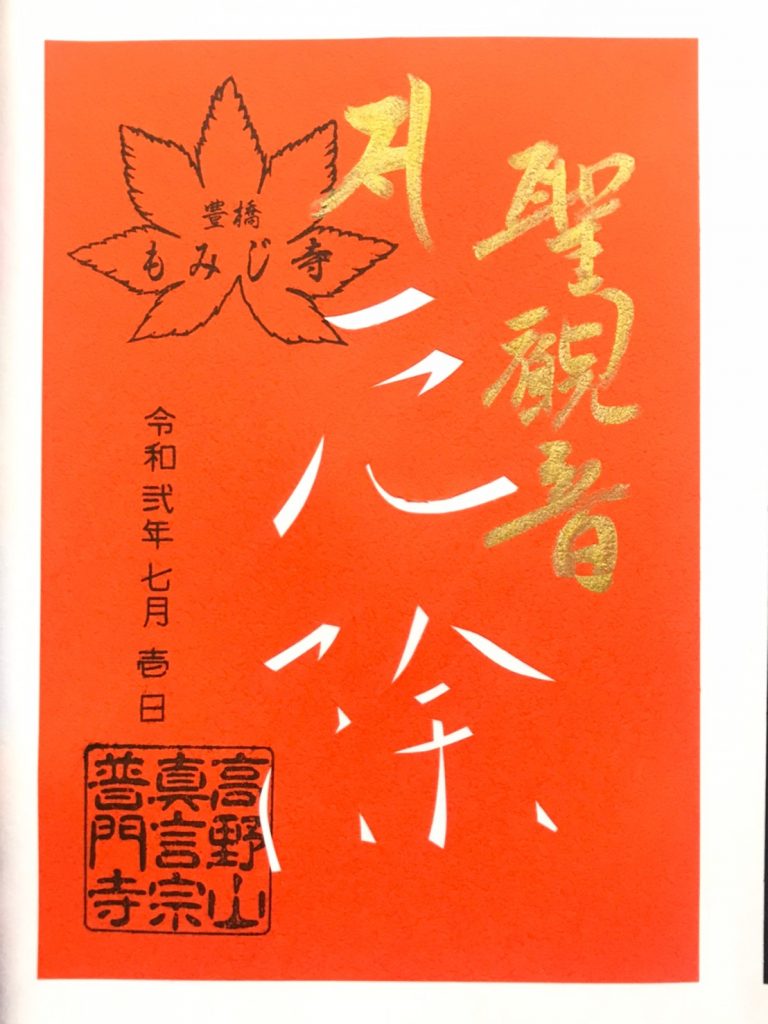 聖観音
厄除
豊橋
もみじ寺
令和弐年七月壱日
高野山
真言宗
普門寺